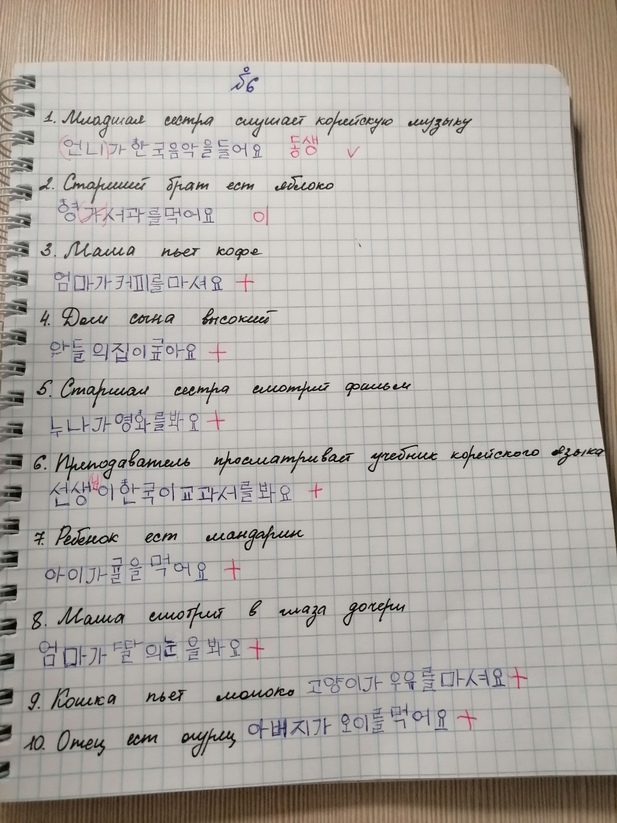 №6
1. Младшая сестра слушает корейскую музыку
언니가 한국음악을들어요 동생 v
2. Старший брат ест яблоко
형가서과를먹어요 이
3. Мама пьет кофе
엄마가커피를마셔요 +
4. Дом сына высокий
아들의집이높아요 +
5. Старшая сестра смотрит фильм
누나가영화를봐요 +
6. Преподаватель просматривает учебник корейского языка
선생님이한국어교과서를봐요 +
7. Ребенок ест мандарин
아이가귤을먹어요 +
8. Мама смотрит в глаза дочери
엄마가딸의눈을봐요 +
9. Кошка пьет молоко 고양이가우유를마셔요 +
10. Отец ест огурец 아버지가오이를먹어요 +